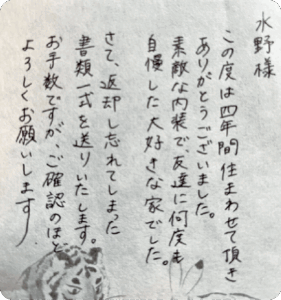 水野様
この度は四年間住まわせて頂き
ありがとうございました。
素敵な内装で、友達に何度も
自慢した大好きな家でした。
さて、返却し忘れてしまった
書類一式を送りいたします。
お手数ですが、ご確認のほど
よろしくお願いします